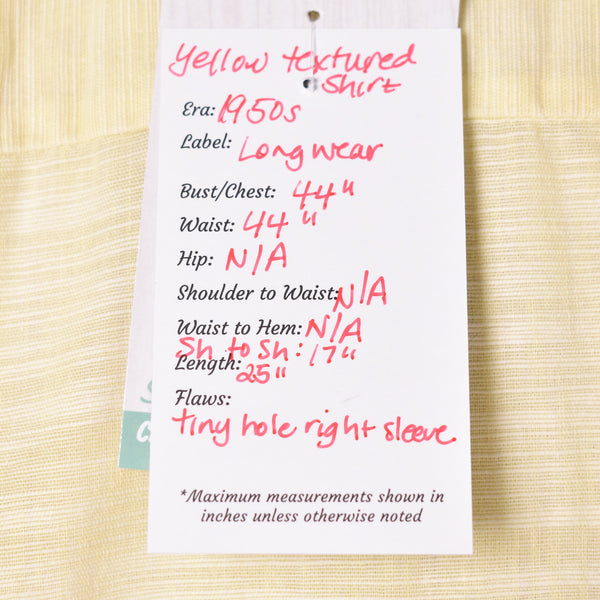 Yellow textured
Shirt
Era: 1950s
Label: Longwear
Bust/Chest: 44"
Waist: 44"
Hip: N/A
Shoulder to Waist: N/A
Waist to Hem: N/A
Sh to Sh: 17"
Length: 25"
Flaws:
tiny hole right sleeve
*Maximum measurements shown in
inches unless otherwise noted